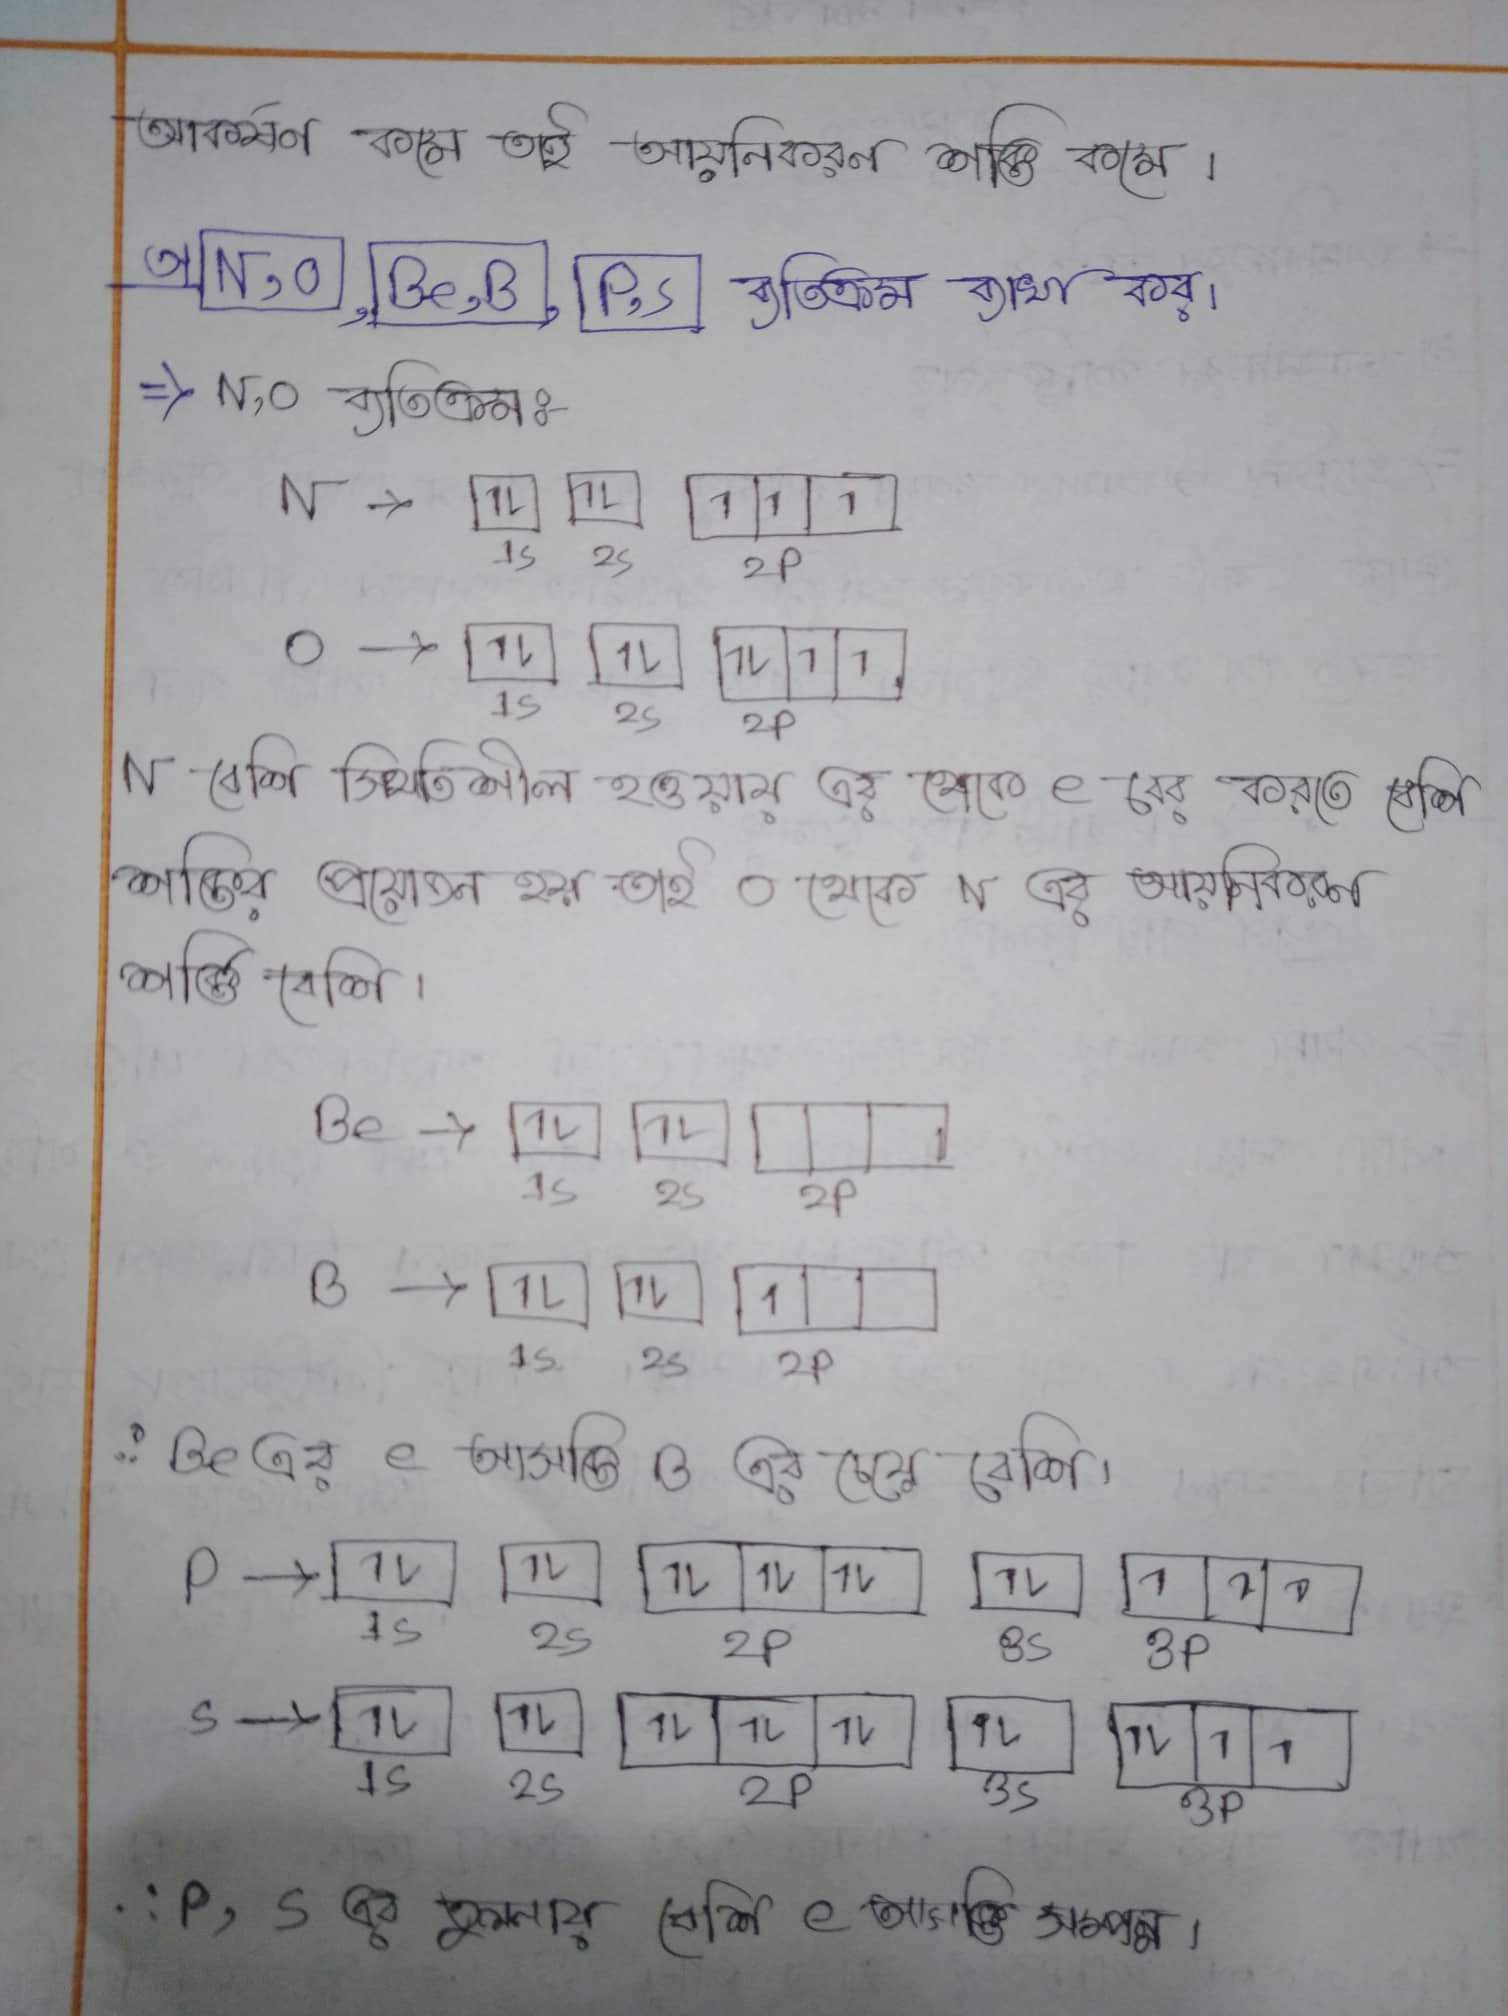 আকর্ষণ কমে তাই আয়নিকরন শক্তি কমে।
অ N,O , Be,B , P,S ব্যতিক্রম ব্যাখ্যা কর।
⇒ N,O ব্যতিক্রমঃ-
N → 1L 1L 1 1 1
1S 2S 2P
O → 1L 1L 1L 1 1
1S 2S 2P
N বেশি স্থিতিশীল হওয়ায় এর থেকে e বের করতে বেশি
শক্তির প্রয়োজন হয় তাই O থেকে N এর আয়নিকরন
শক্তি বেশি।
Be → 1L 1L
1S 2S 2P
B → 1L 1L 1
1S 2S 2P
∴ Be এর e আসক্তি B এর চেয়ে বেশি।
P → 1L 1L 1L 1L 1L 1L 1 1 1
1S 2S 2P 3S 3P
S → 1L 1L 1L 1L 1L 1L 1L 1 1
1S 2S 2P 3S 3P
∴ P, S এর তুলনায় বেশি e আসক্তি সম্পন্ন।